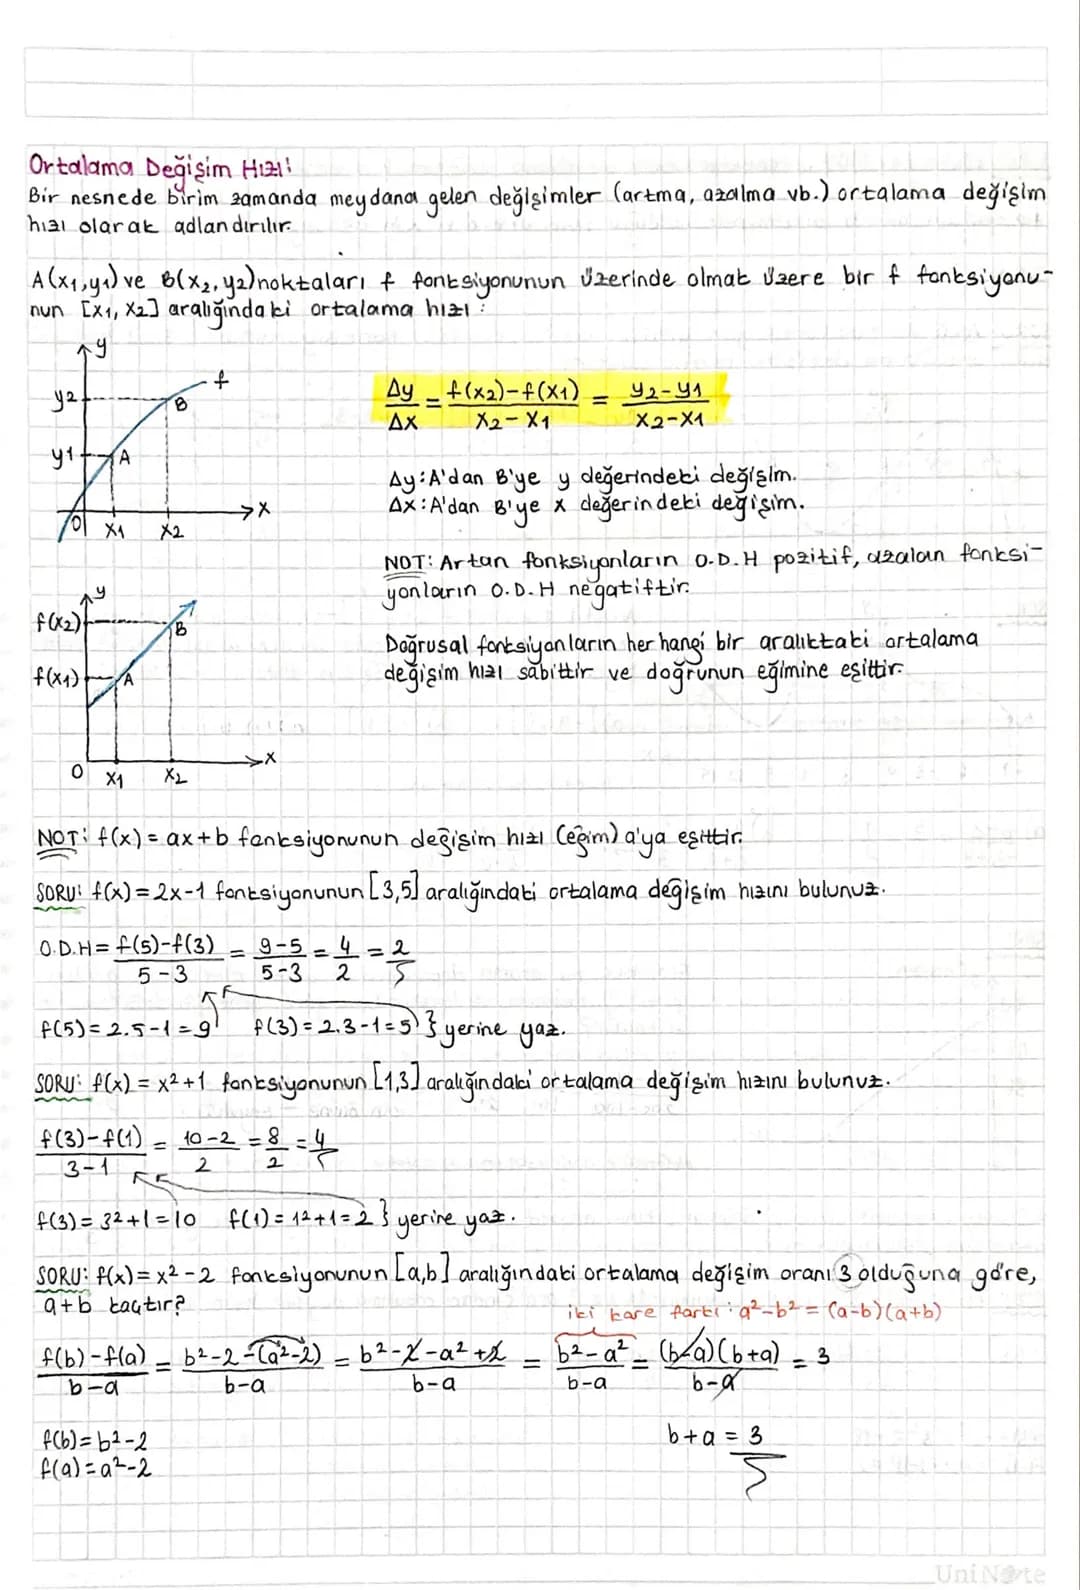 Ortalama Değişim Hızı:
Bir nesnede birim zamanda meydana gelen değişimler (artma, azalma vb.) ortalama değişim
hızı olarak adlandırılır.
A(x1,y1) ve B(x2,y2) noktaları f fonksiyonunun üzerinde olmak üzere bir f fonksiyonu-
nun [x1, x2] aralığındaki ortalama hızı :
y
f
y2
B
y1
A
0 x1 x2
x
Δy/Δx = f(x2)-f(x1)/x2-x1 = y2-y1/x2-x1
Δy: A'dan B'ye y değerindeki değişim.
Δx: A'dan B'ye x değerindeki değişim.
NOT: Artan fonksiyonların O.D.H pozitif, azalan fonksi-
yonların O.D.H negatiftir.
y
f(x2)
B
f(x1)
A
0 x1 x2
x
Doğrusal fonksiyonların her hangi bir aralıktaki ortalama
değişim hızı sabittir ve doğrunun eğimine eşittir.
NOT: f(x) = ax+b fonksiyonunun değişim hızı (eğim) a'ya eşittir.
SORU: f(x) = 2x-1 fonksiyonunun [3,5] aralığındaki ortalama değişim hızını bulunuz.
O.D.H = f(5)-f(3)/5-3 = 9-5/5-3 = 4/2 = 2
f(5) = 2.5-1 = 9 f(3) = 2.3-1 = 5 } yerine yaz.
SORU: f(x) = x²+1 fonksiyonunun [1,3] aralığındaki ortalama değişim hızını bulunuz.
f(3)-f(1)/3-1 = 10-2/2 = 8/2 = 4
f(3) = 3²+1 = 10 f(1) = 1²+1 = 2 } yerine yaz.
SORU: f(x) = x²-2 fonksiyonunun [a,b] aralığındaki ortalama değişim oranı 3 olduğuna göre,
a+b kaçtır?
iki kare farkı: a²-b² = (a-b)(a+b)
f(b)-f(a)/b-a = b²-2-(a²-2)/b-a = b²-2-a²+2/b-a = b²-a²/b-a = (b-a)(b+a)/b-a = 3
f(b) = b²-2
b+a = 3
f(a) = a²-2
UniNote